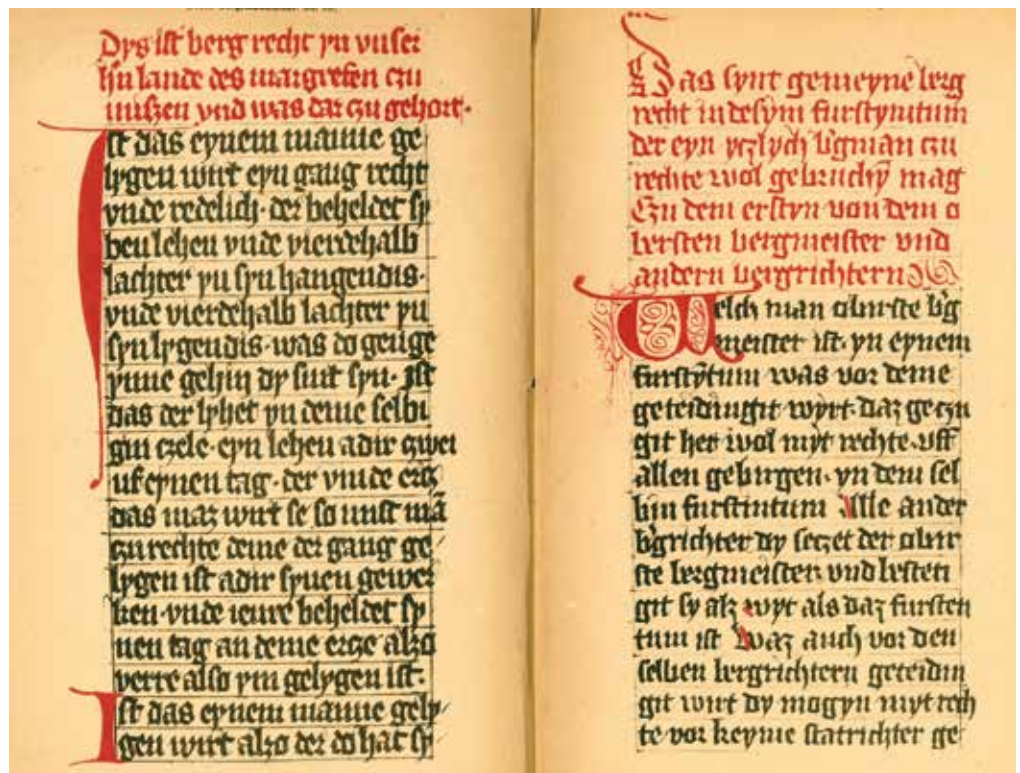 Dys ist berg recht yn vnser
hn lande des margrefen czu
miszen vnd was dar czu gehort.
Ist das eynem manne ge
lygen wirt eyn gang recht
vnde redelich. der beheldet sy
ben lehen vnde vierdehalb
lachter yn syn hangendis.
vnde vierdehalb lachter yn
syn lygendis. was do genge
ynne gehin dy sint syn. Ist
das der lyhet yn deme selbi
gin czele. eyn lehen adir zwei
uf eynen tag. der vinde ercz
das maz wirt se so unst mā
czu rechte deme der gang ge
lygen ist adir synen gewer
ken. vnde ienre beheldet sy
nen tag an deme ercze alzo
verre also ym gelygen ist.
Ist das eynem manne gely
gen wirt alzo der do hat sy
Das synt gemeyne berg
recht in desym furstyntum
der eyn yczlych b'gman czu
rechte wol gebruchyn mag
Czu dem erstyn von dem o
bersten bergmeister vnd
andern bergrichtern
Welch man obirste b'g
meister ist. yn eynem
furstȳtum was vor deme
geteidingit wyrt. daz geczu
git her wol myt rechte. vff
allen gebirgen. yn dem sel
bin furstintum Alle ander
b'grichter dy seczet der obir
ste bergmeister. vnd besteti
git sy alz wyt als daz fursten
tum ist Waz auch vor den
selben bergrichtern geteidin
git wirt dy mogyn myt rech
te vor keyme statrichter ge